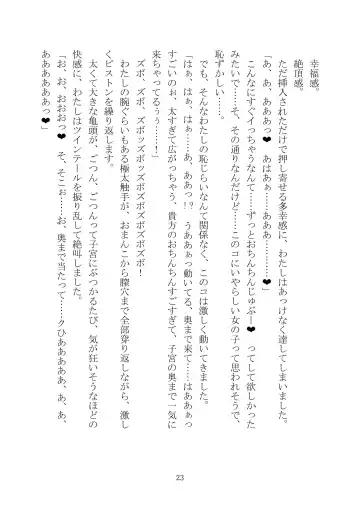 幸福感。
絶頂感。
ただ挿入されただけで押し寄せる多幸感に、わたしはあっけなく達してしまいました。
「あ、あ、あああっ♥　あはあぁ……ああぁ…………♥」
こんなにすぐイっちゃうなんて……ずっとおちんちんじゅぶー♥　ってして欲しかった
みたいで……そ、その通りなんだけど……このコにいやらしい女の子って思われそうで、
恥ずかしい……。
でも、そんなわたしの恥じらいなんて関係なく、このコは激しく動いてきました。
「はぁ、はぁ、はぁ……あ、ああっ!?　うああぁっ動いてる、奥まで来て……はああぁっ
すごいのぉ、太すぎて広がっちゃう、貴方のおちんちんすごすぎて、子宮の奥まで一気に
来ちゃってるぅぅ……！」
ズボ、ズボ、ズボッズボッズボズボズボズボ！
わたしの腕ぐらいもある極太触手が、おまんこから膣穴まで全部穿り返しながら、激し
くピストンを繰り返します。
太くて大きな亀頭が、ごつん、ごつんって子宮にぶつかるたび、気が狂いそうなほどの
快感に、わたしはツインテールを振り乱して絶叫しました。
「お、お、おおおっ♥　そ、そこぉ……お、奥まで当たって……クひああああぁ、あ、あ、
ああああああっ♥
23